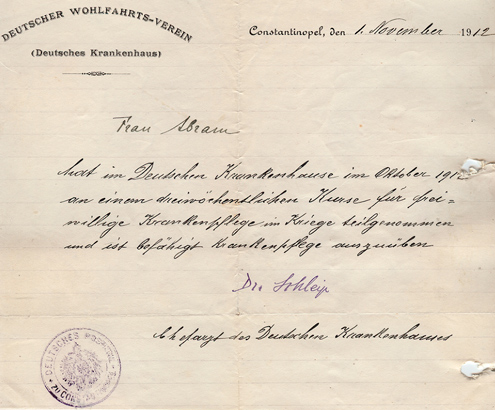 DEUTSCHER WOHLFAHRTS-VEREIN
(Deutsches Krankenhaus)
Constantinopel, den 1. November 1912
Frau Abram
hat im Deutschen Krankenhause im Oktober 1912
an einem dreiwöchentlichen Kurse für frei=
willige Krankenpflege im Kriege teilgenommen
und ist befähigt Krankenpflege auszuüben
Dr. Schleip
Chefarzt des Deutschen Krankenhauses
DEUTSCHES HOSPITAL